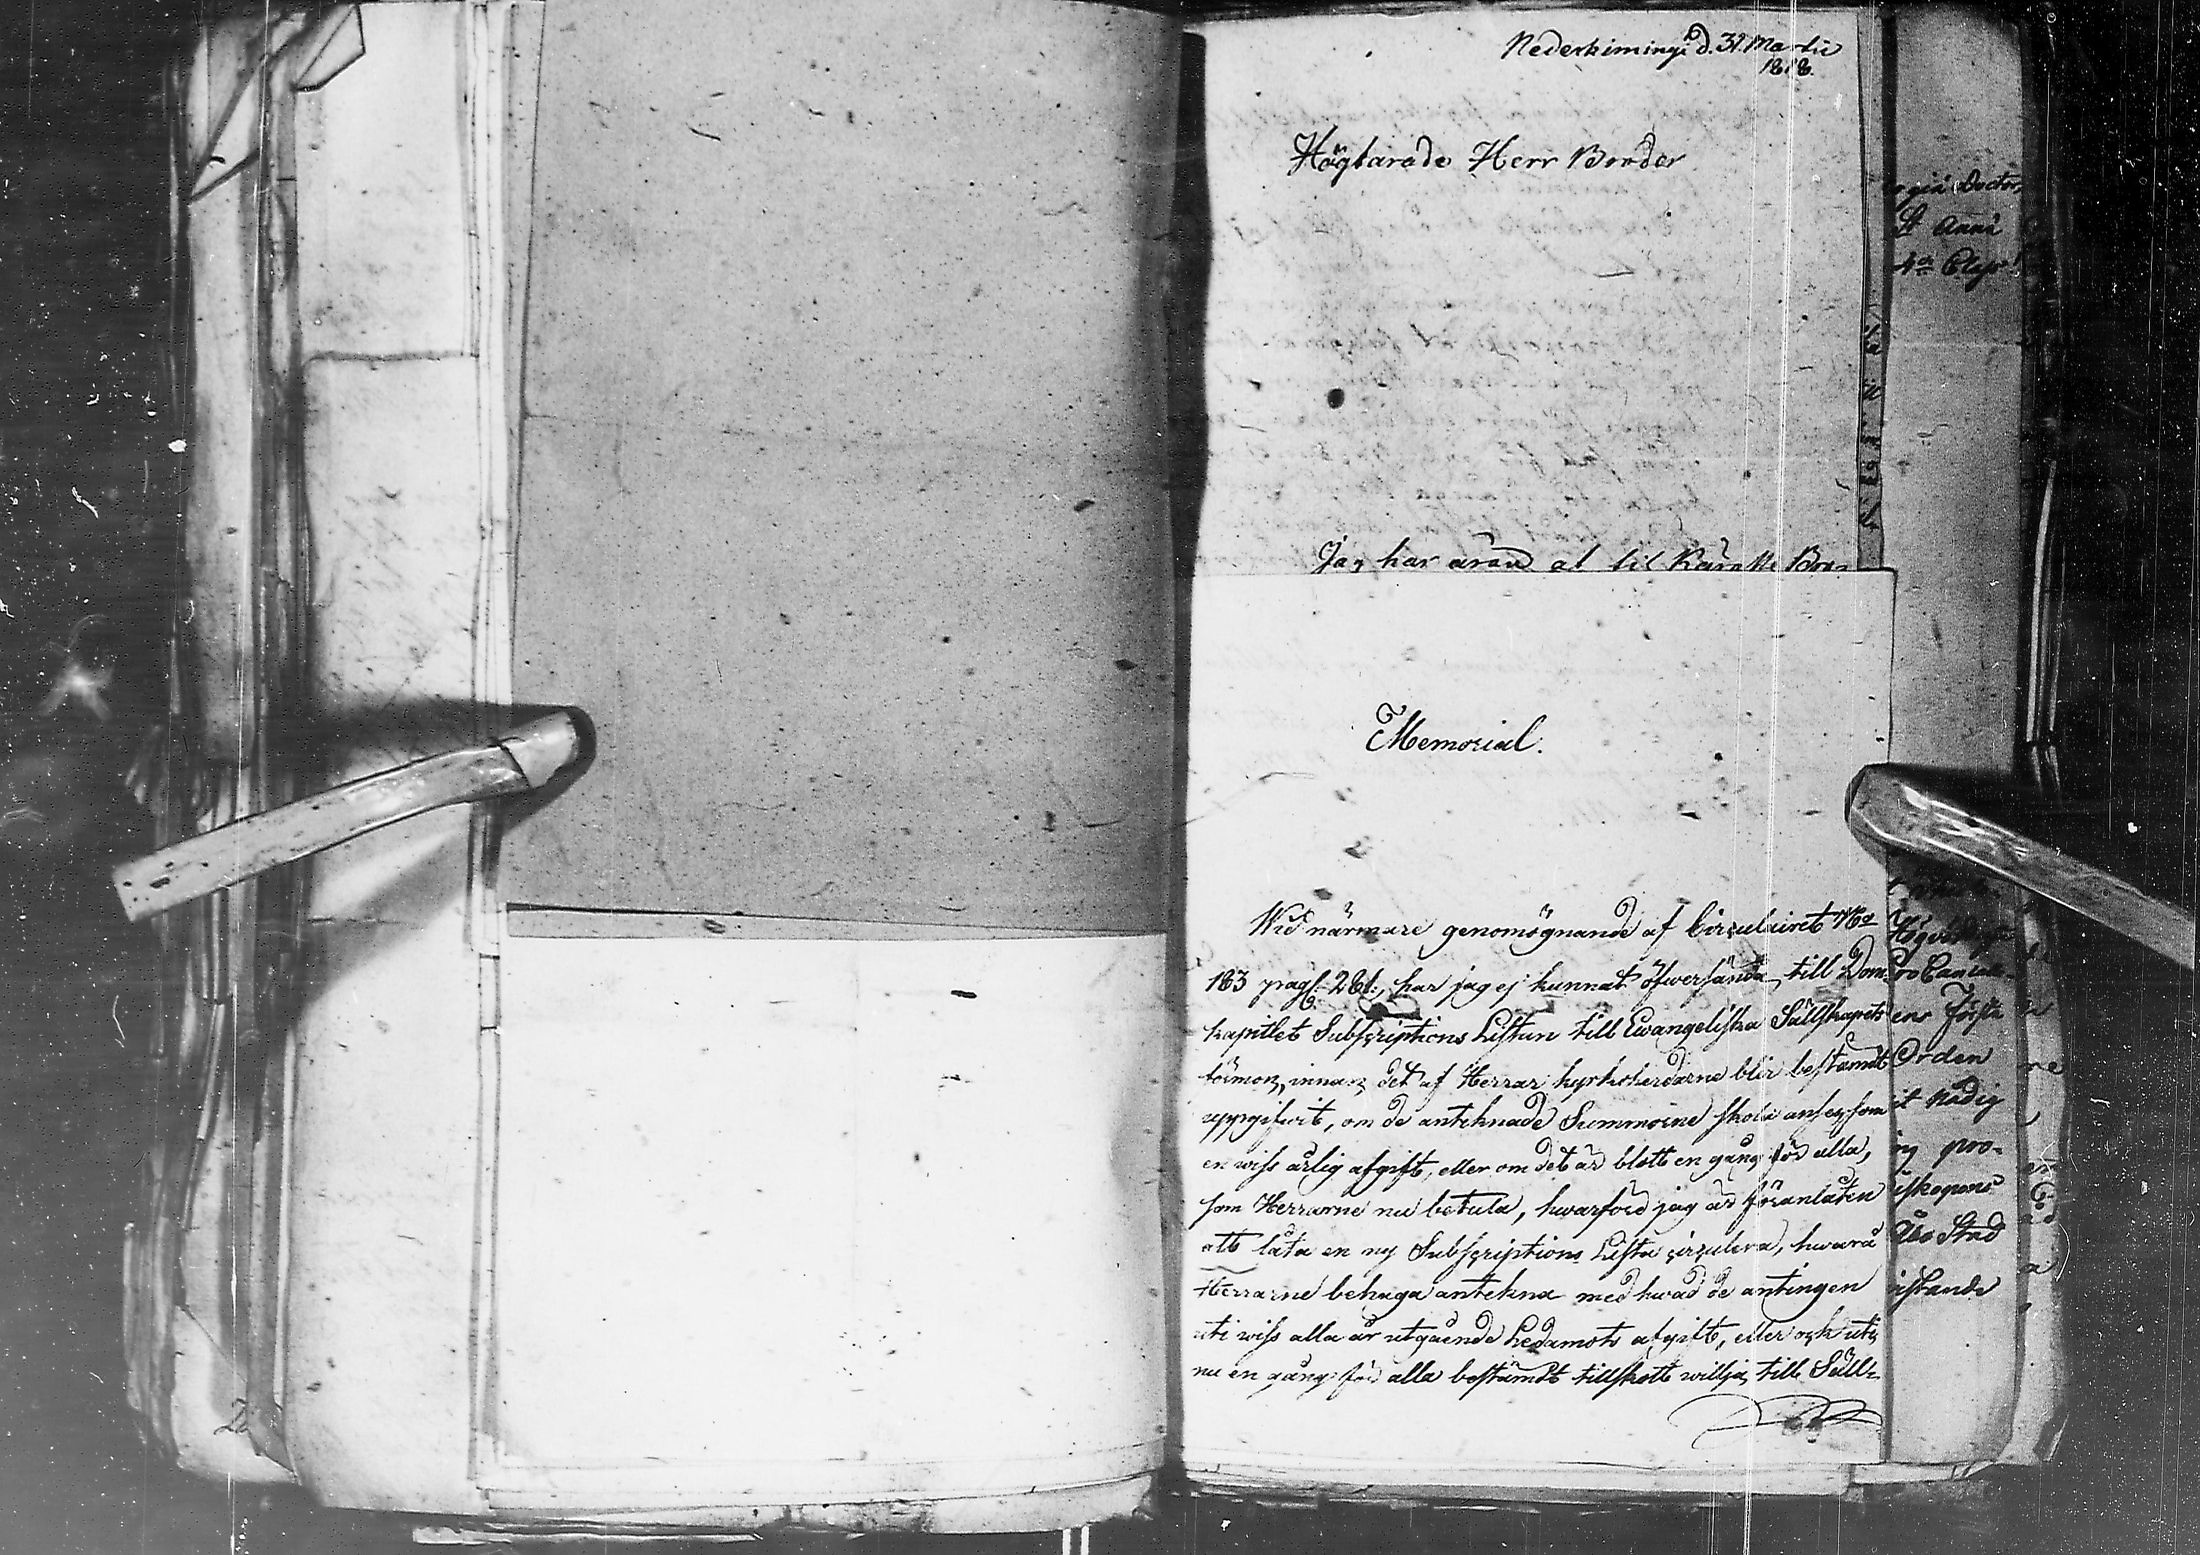 Nederkimingi d. 31 Martii
1818.
Höglärade Herr Broder
Jag har äran at til Käraste Bro-
Memorial.
Wid närmare genomögnande af Circulairet No
183 pragf. 281., har jag ej kunnat öfwersända till Dom
kapitlet Subscriptions Listan till Ewangeliska Sällskapets
förmon, innan det af Herrar kyrkoherdarne blir bestämdt
uppgifwit, om de anteknade Summorne skola anses som
en wiss årlig afgift, eller om det är blott en gång för alla,
som Herrarne nu betala, hwarför jag är föranlåten
att låta en ny Subscriptions Lista circulera, hwarå
Herrarne behaga antekna med hwad de antingen
uti wiss alla år utgående Ledamots afgift, eller ock uti
nu en gång för alla bestämdt tillskott willja till Säll-
gia Doctor,
St Annæ
4a
Cancell
en Förste
Orden
it Nådig
ng pro-
iskopens
Åbo Stad
istande